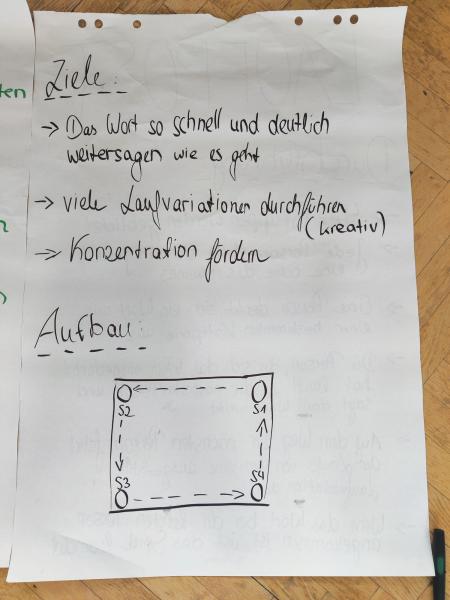 ten
Ziele:
→ Das Wort so schnell und deutlich
weitersagen wie es geht
→ viele Laufvariationen durchführen
(kreativ)
→ Konzentration fördern
Aufbau:
S2 S1
S3 S4